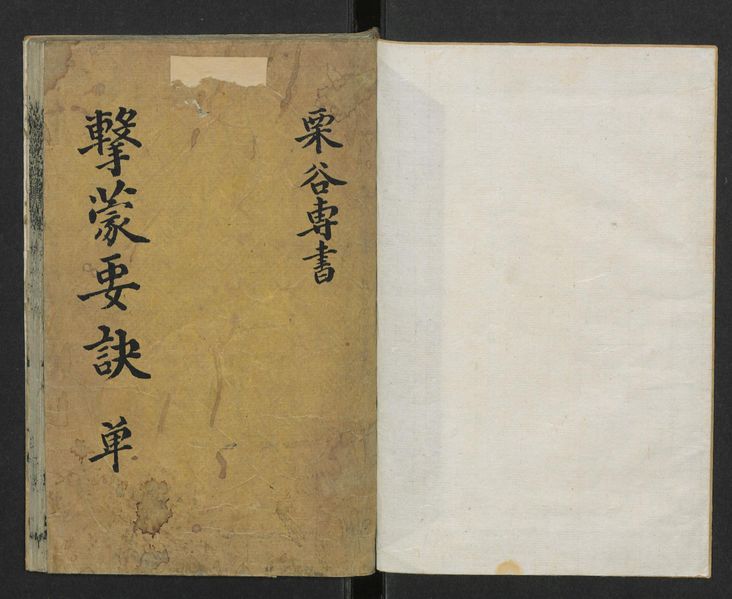 栗谷專書
擊蒙要訣 单